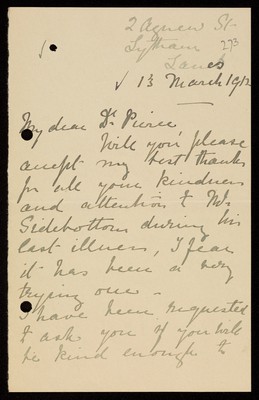 2 Agnew St.
Lytham 273
Lancs
13 March 1912
My dear Dr Pierce
Will you please
accept my best thanks
for all your kindness
and attention to Mr
Sidebottom during his
last illness, I fear
it has been a very
trying one -
I have been requested
to ask you if you will
be kind enough to